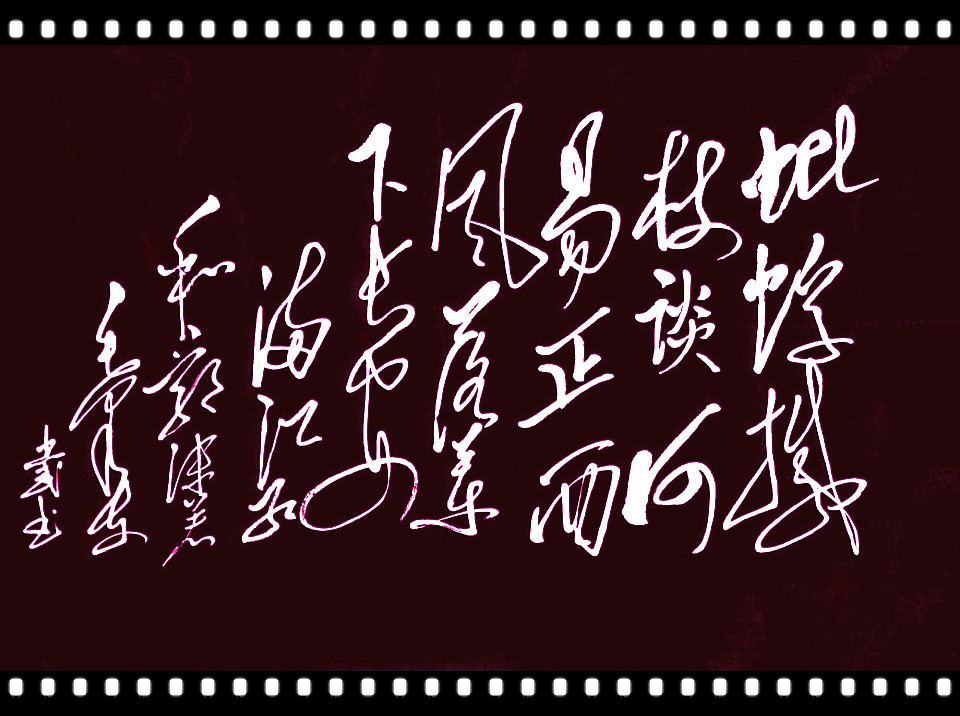 蚍蜉撼
树谈何
易正西
风落葉
下长安
满江红
和郭沫若
毛泽东